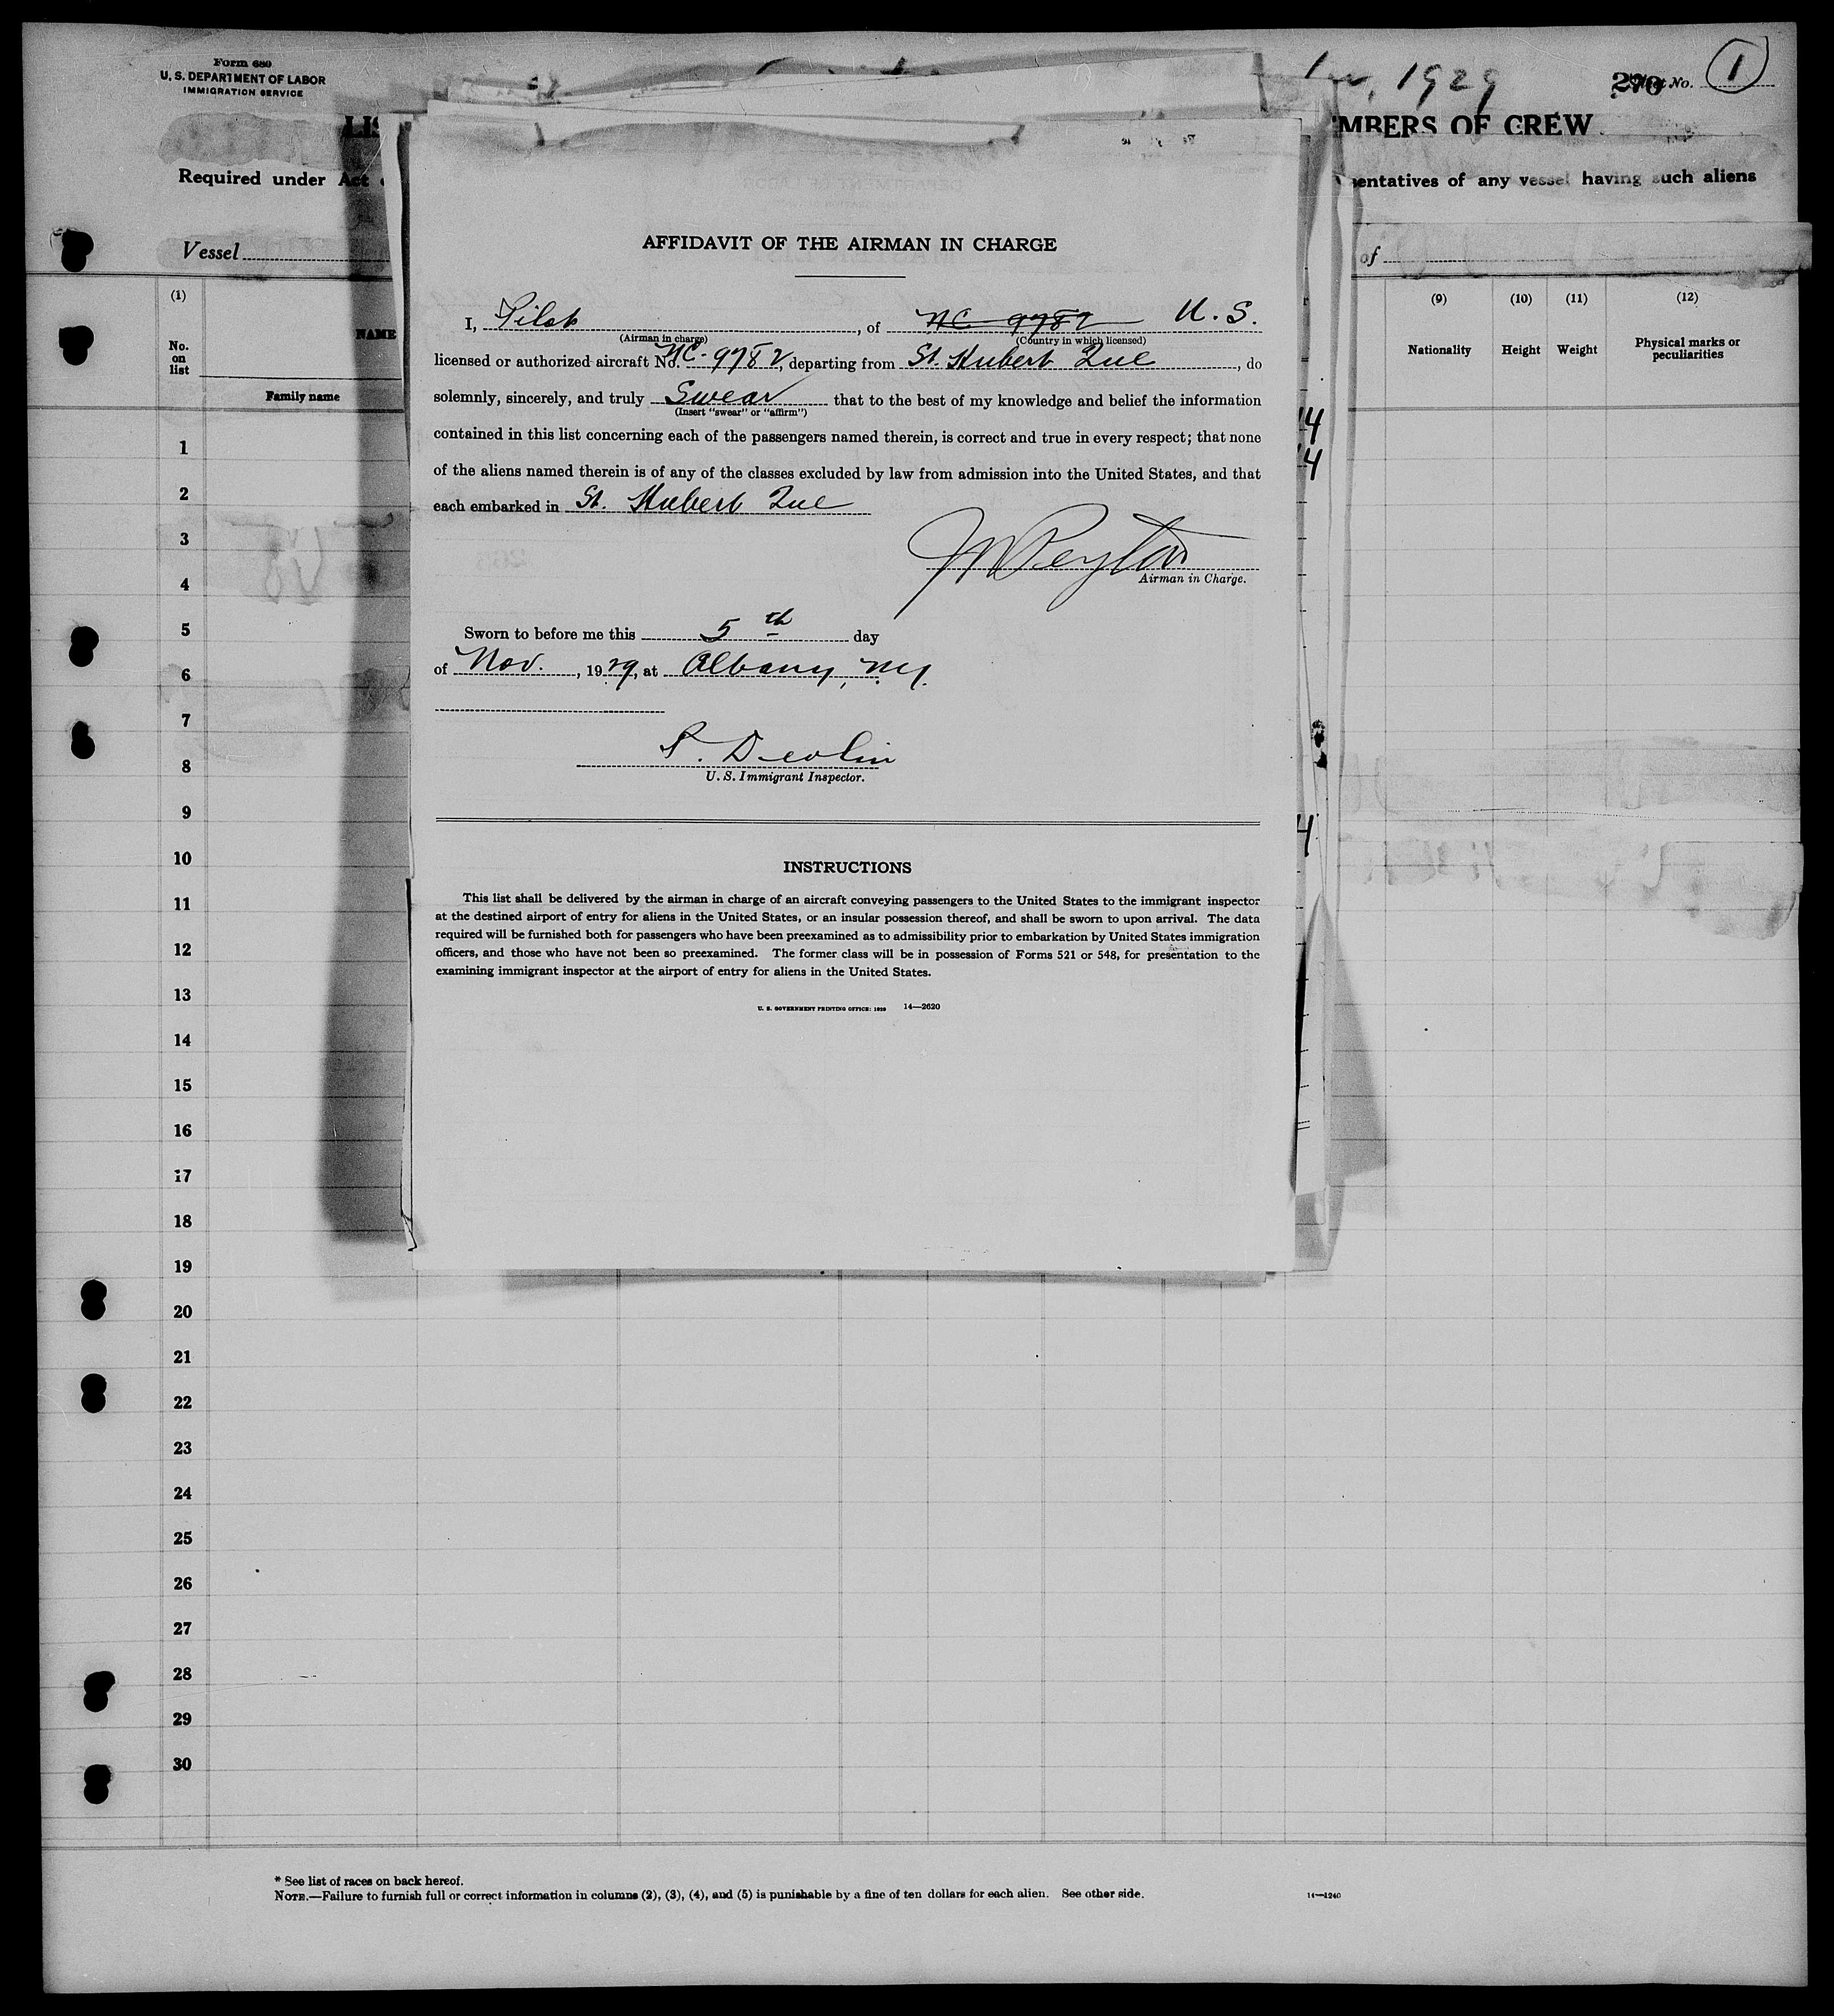 Form 689
U. S. DEPARTMENT OF LABOR
IMMIGRATION SERVICE
1929
270
No. 1
LIS
MBERS OF CREW
Required under Act
sentatives of any vessel having such aliens
Vessel
of
(1)
(9) (10) (11) (12)
No. on list
NAME
Family name
Nationality Height Weight Physical marks or peculiarities
AFFIDAVIT OF THE AIRMAN IN CHARGE
I, Pilot, of NC 9782 U. S.
(Airman in charge) (Country in which licensed)
licensed or authorized aircraft No. NC-9782, departing from St. Hubert Que, do
solemnly, sincerely, and truly Swear that to the best of my knowledge and belief the information
(Insert "swear" or "affirm")
contained in this list concerning each of the passengers named therein, is correct and true in every respect; that none
of the aliens named therein is of any of the classes excluded by law from admission into the United States, and that
each embarked in St. Hubert Que
Peyton
Airman in Charge.
Sworn to before me this 5th day
of Nov., 1929, at Albany, N.Y.
Devlin
U. S. Immigrant Inspector.
INSTRUCTIONS
This list shall be delivered by the airman in charge of an aircraft conveying passengers to the United States to the immigrant inspector
at the destined airport of entry for aliens in the United States, or an insular possession thereof, and shall be sworn to upon arrival. The data
required will be furnished both for passengers who have been preexamined as to admissibility prior to embarkation by United States immigration
officers, and those who have not been so preexamined. The former class will be in possession of Forms 521 or 548, for presentation to the
examining immigrant inspector at the airport of entry for aliens in the United States.
U. S. GOVERNMENT PRINTING OFFICE: 1929 14—2620
4
4
4
1
2
3
4
5
6
7
8
9
10
11
12
13
14
15
16
17
18
19
20
21
22
23
24
25
26
27
28
29
30
* See list of races on back hereof.
NOTE.—Failure to furnish full or correct information in columns (2), (3), (4), and (5) is punishable by a fine of ten dollars for each alien. See other side.
14—1240